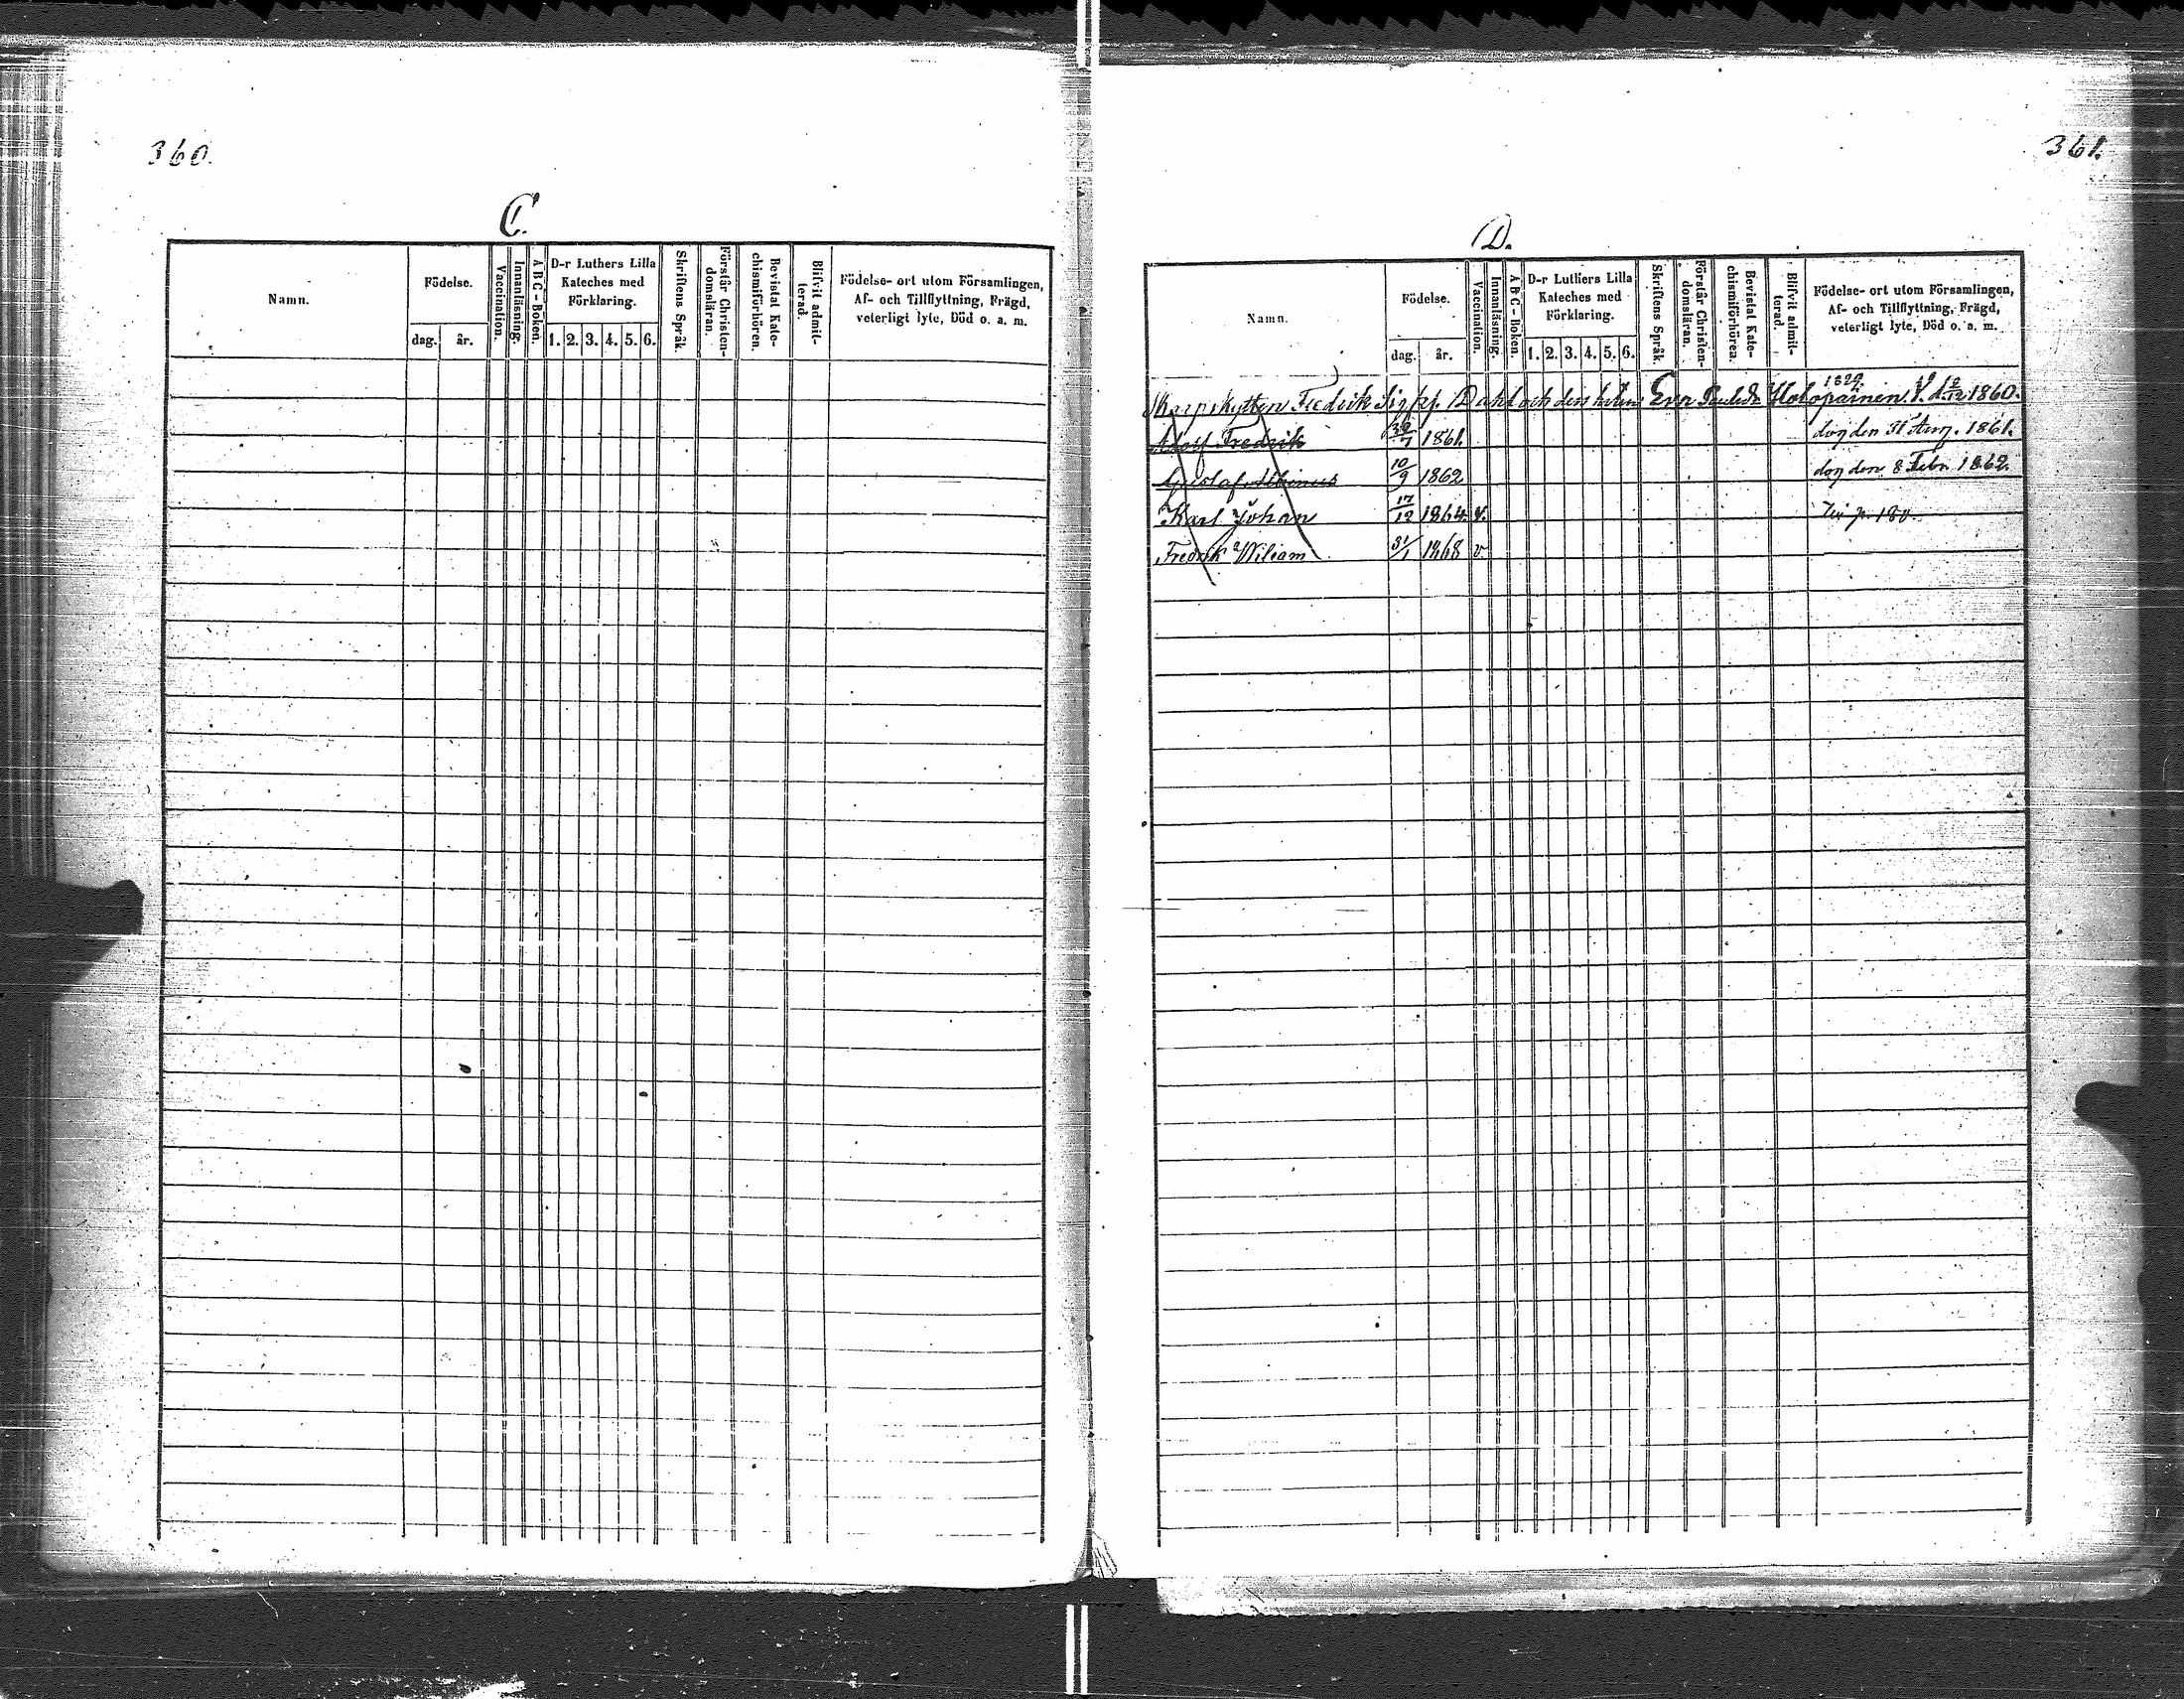 360.
C.
Namn.
Födelse.
dag.
år.
Vaccination.
Innanläsning.
A B C - Boken.
D-r Luthers Lilla
Kateches med
Förklaring.
1. 2. 3. 4. 5. 6.
Skriftens Språk.
Förstår Christen-
domsläran.
Bevistat Kate-
chismiförhören.
Blifvit admit-
terad.
Födelse- ort utom Församlingen,
Af- och Tillflyttning, Frägd,
veterligt lyte, Död o. a. m.
361.
D.
Namn.
Födelse.
dag.
år.
Vaccination.
Innanläsning.
A B C - Boken.
D-r Luthers Lilla
Kateches med
Förklaring.
1. 2. 3. 4. 5. 6.
Skriftens Språk.
Förstår Christen-
domsläran.
Bevistat Kate-
chismiförhören.
Blifvit admit-
terad.
Födelse- ort utom Församlingen,
Af- och Tillflyttning, Frägd,
veterligt lyte, Död o. a. m.
1829
Skarpskytten Fredrik Dahl och dess Eva Holopainen V. d. 1860.
Adolf Fredrik 1861. dog den 31 Aug. 1861.
Gustaf 10/9 1862 dog den 8 Febr. 1862.
Karl Johan 17/12 1864. v. 180.
Fredrik Wiliam 31/1 1868 v.